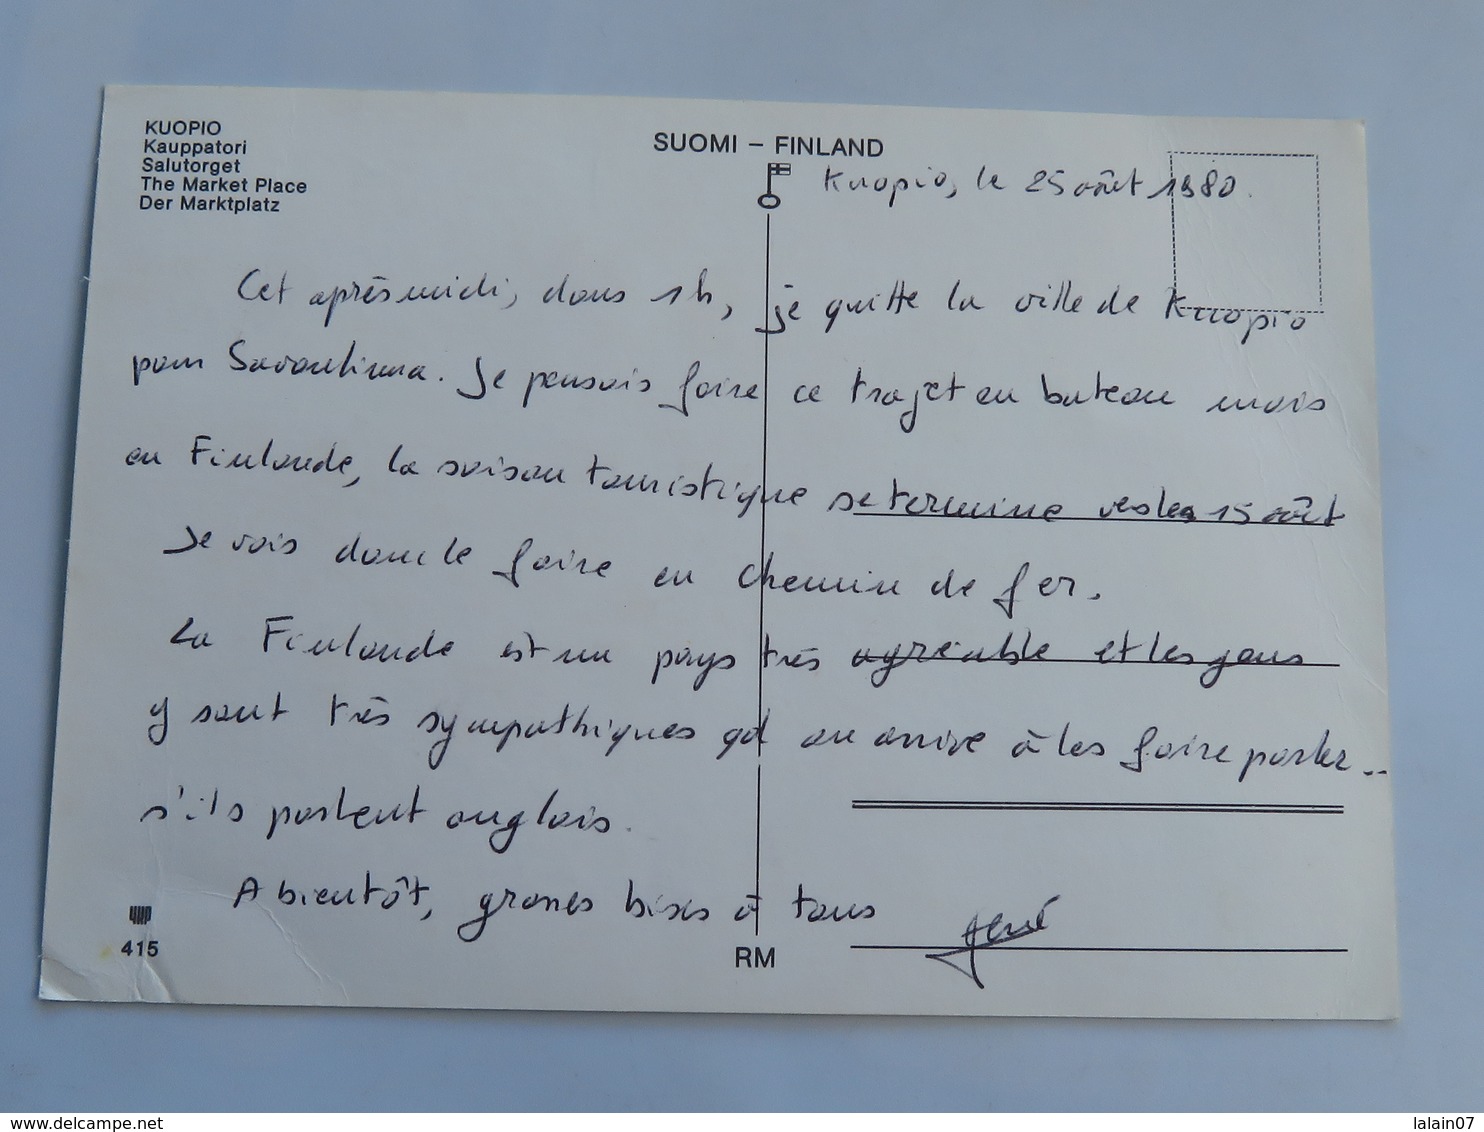 KUOPIO
Kauppatori
Salutorget
The Market Place
Der Marktplatz
SUOMI – FINLAND
Kuopio, le 25 août 1980.
Cet après midi, dans 1h, je quitte la ville de Kuopio
pour Savonlinna. Je pensais faire ce trajet en bateau mais
en Finlande, la saison touristique se termine vers le 15 août
Je vais donc le faire en chemin de fer.
La Finlande est un pays très agréable et les gens
y sont très sympathiques qd on arrive à les faire parler..
s'ils parlent anglais.
A bientôt, grosses bises à tous
Hervé
415
RM
delcampe.net
lalain07